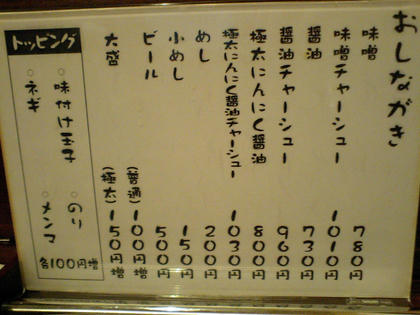 おしながき
味噌 780円
味噌チャーシュー 1010円
醤油 730円
醤油チャーシュー 960円
極太にんにく醤油 800円
極太にんにく醤油チャーシュー 1030円
めし 200円
小めし 150円
ビール 500円
大盛 (普通) 100円増
(極太) 150円増
トッピング
○味付け玉子 ○のり
○ネギ ○メンマ
各100円増